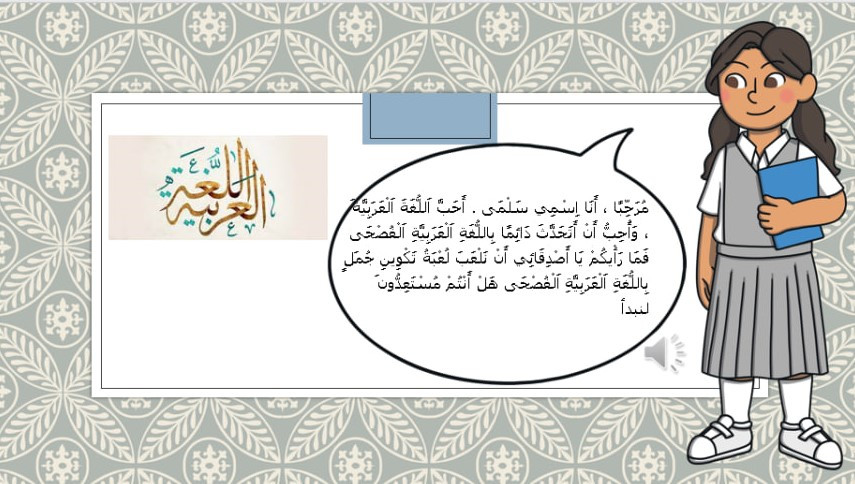 اللغة العربية
مُرَحِّبًا ، أَنَا اِسْمِي سَلْمَى . أَحَبَّ اَللُّغَةَ اَلْعَرَبِيَّةَ
، وَأُحِبُّ أَنْ أَتَحَدَّثَ دَائِمًا بِاللُّغَةِ اَلْعَرَبِيَّةِ اَلْفُصْحَى
فَمَا رَأْيُكُمْ يَا أَصْدِقَائِي أَنْ نَلْعَبَ لُعْبَةُ تَكْوِينِ جُمَلٍ
بِاللُّغَةِ اَلْعَرَبِيَّةِ اَلْفُصْحَى هَلْ أَنْتُمْ مُسْتَعِدُّونَ
لنبدأ